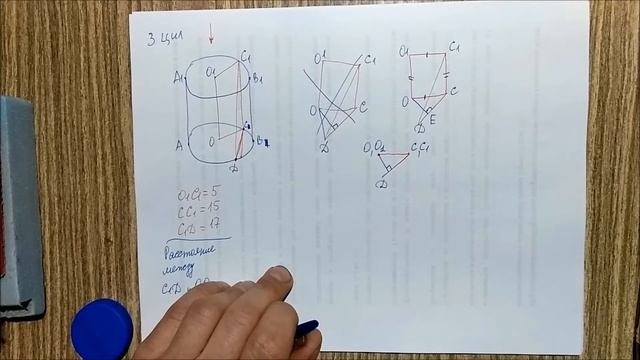 3 цил
A1
O1
C1
B1
A
O
C
B
D
O1
C1
O
C
D
O1
C1
O
C
D
E
O,O2
C,C1
D
O1C1=5
CC1=15
C1D=17
Расстояние
между
C1D